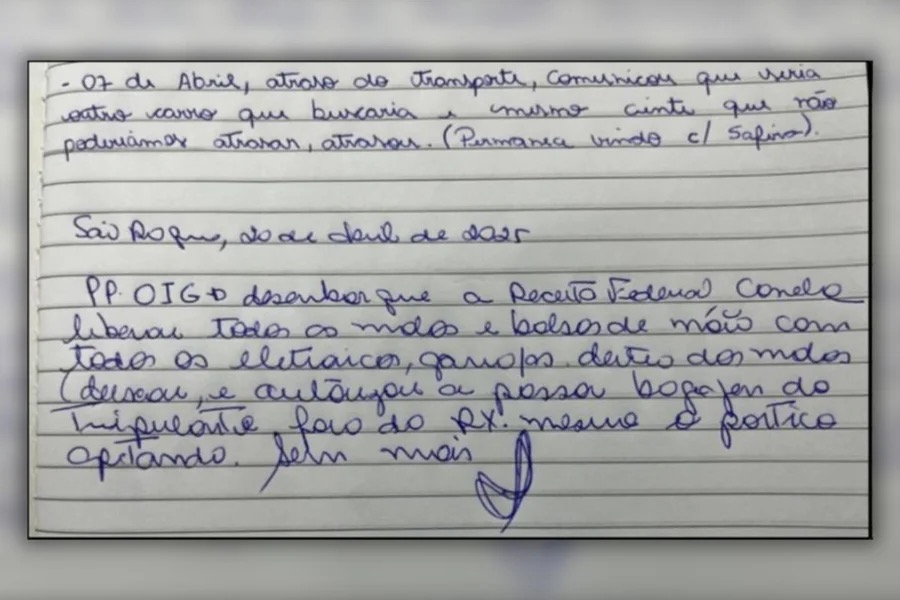 - 07 de Abril, atraso do transporte, comunicou que seria
outro carro que buscaria e mesmo ciente que não
poderíamos atrasar, atrasou. (Permanece vindo c/ Safira).
São Roque, 20 de Abril de 2025
PP. OIG desembarque a Receita Federal Canela
liberou todas as malas e bolsas de mão com
todos os eletrônicos, garrafas dentro das malas
(deixou, e autorizou a passar bagagem do
tripulante fora do RX. mesmo o pórtico
apitando. Sem mais